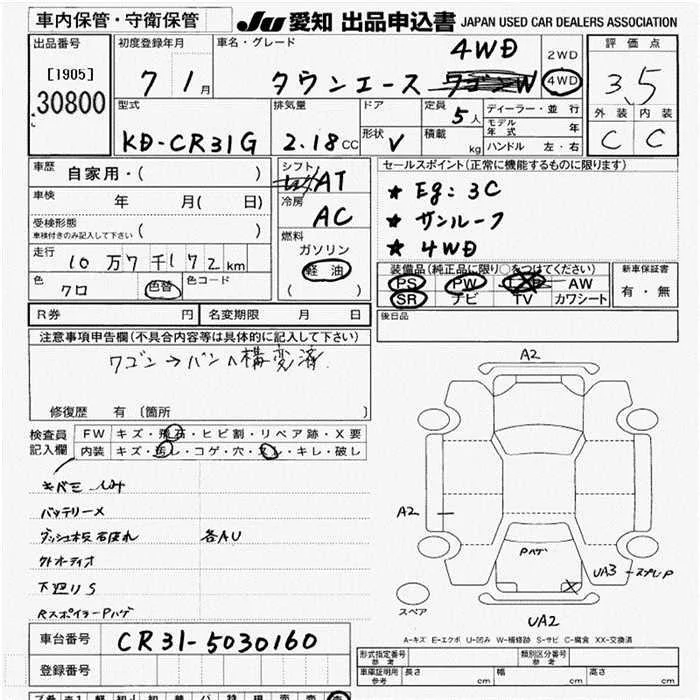 車内保管・守衛保管
JU 愛知 出品申込書 JAPAN USED CAR DEALERS ASSOCIATION
出品番号
[1905]
30800
初度登録年月
7 1月
車名・グレード
タウンエース ワゴンW
4WD
2WD
4WD
評価点
3.5
外装 内装
C C
型式
KD-CR31G
排気量
2.18CC
ドア
形状 V
定員
5人
積載
kg
ディーラー・並行
モデル年式 年
ハンドル 左・右
車歴
自家用・( )
車検
年 月( 日)
受検形態
車検付きのみ記入して下さい ( )
走行
10万7千172km
色
クロ
色替
色コード
シフト
AT
冷房
AC
燃料
ガソリン
軽油
( )
セールスポイント(正常に機能するものに限ります)
★ Eg: 3C
★ サンルーフ
★ 4WD
装備品(純正品に限り○をつけてください)
PS PW AW
SR ナビ TV カワシート
新車保証書
有・無
後日品
R券 円
名変期限 月 日
注意事項申告欄(不具合内容等は具体的に記入して下さい)
ワゴン→バンへ構変済
修復歴 有 〔箇所 〕
検査員
記入欄
FW キズ・飛石・ヒビ割・リペア跡・X要
内装 キズ・汚し・コゲ・穴・スレ・キレ・破し
バッテリーメ
ダッシュ板 各AU
外オーディオ
下廻りS
RスポイラーPハゲ
A2
A2
Pハゲ
UA3
UA2
スペア
A-キズ E-エクボ U-凹み W-補修跡 S-サビ C-腐食 XX-交換済
車台番号
CR31-5030160
登録番号
形式指定番号
参考
類別区分番号
参考
車庫証明用
参考
長さ cm 幅 cm 高さ cm